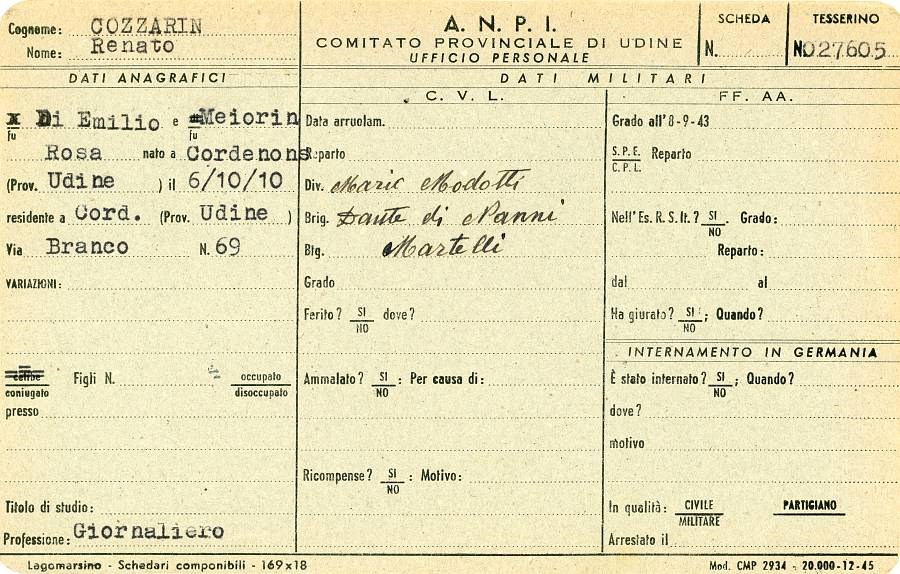 Cognome: COZZARIN
Nome: Renato
A. N. P. I.
COMITATO PROVINCIALE DI UDINE
UFFICIO PERSONALE
SCHEDA
N.
TESSERINO
N. 027605
DATI ANAGRAFICI
Di Emilio e Meiorin
fu fu
Rosa nato a Cordenons
(Prov. Udine ) il 6/10/10
residente a Cord. (Prov. Udine )
Via Branco N. 69
VARIAZIONI:
celibe
coniugato
Figli N.
occupato
disoccupato
presso
Titolo di studio:
Professione: Giornaliero
DATI MILITARI
C. V. L.
Data arruolam.
Reparto
Div. Mario Modotti
Brig. Dante di Nanni
Btg. Martelli
Grado
Ferito? SI NO dove?
Ammalato? SI NO : Per causa di:
Ricompense? SI NO : Motivo:
FF. AA.
Grado all'8-9-43
S.P.E.
C.P.L.
Reparto
Nell'Es. R. S. It.? SI NO . Grado:
Reparto:
dal al
Ha giurato? SI NO ; Quando?
INTERNAMENTO IN GERMANIA
È stato internato? SI NO ; Quando?
dove?
motivo
In qualità: CIVILE MILITARE PARTIGIANO
Arrestato il
Lagomarsino - Schedari componibili - 169x18
Mod. CMP 2934 - 20.000-12-45